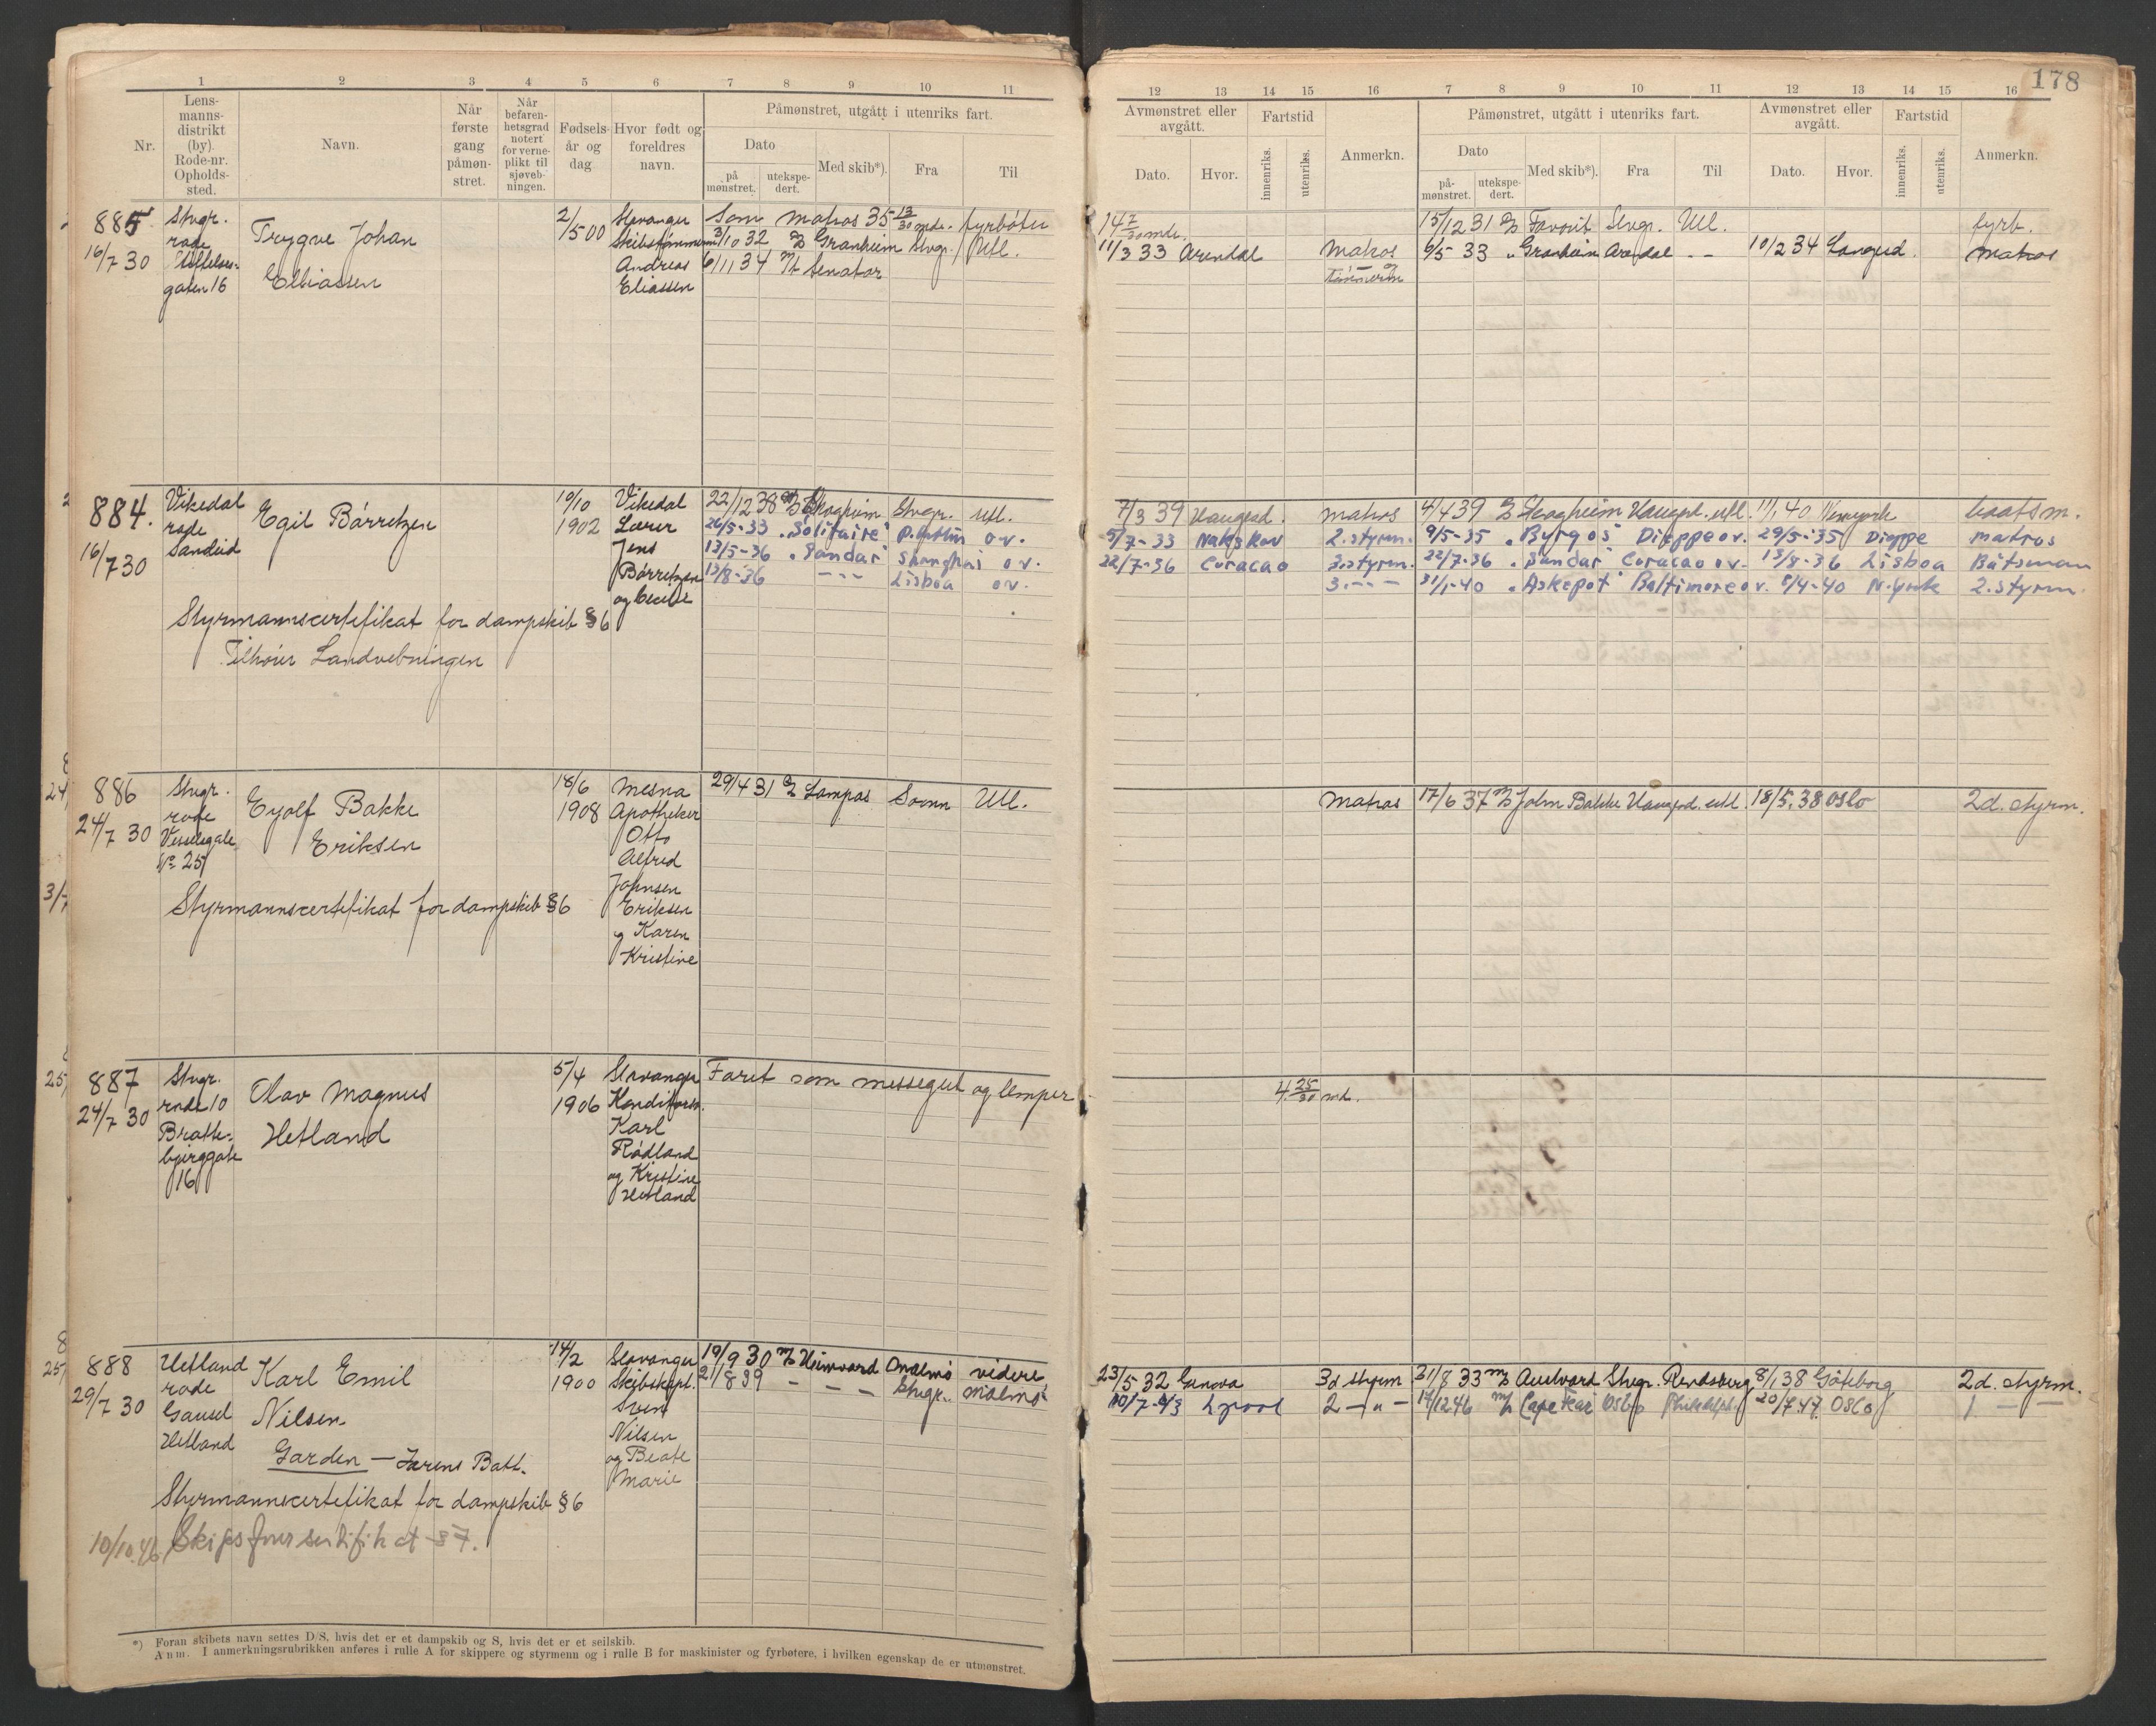 178
1 2 3 4 5 6 7 8 9 10 11
Nr.
Lens-
manns-
distrikt
(by).
Rode-nr.
Opholds-
sted.
Navn.
Når
første
gang
påmøn-
stret.
Når
befaren-
hetsgrad
notert
for verne-
plikt til
sjøveb-
ningen.
Fødsels-
år og
dag
Hvor født og
foreldres
navn.
Påmønstret, utgått i utenriks fart.
Dato
på
mønstret.
utekspe-
dert.
Med skib*).
Fra
Til
12 13 14 15 16 7 8 9 10 11 12 13 14 15 16
Avmønstret eller
avgått.
Dato.
Hvor.
Fartstid
innenriks.
utenriks.
Anmerkn.
Påmønstret, utgått i utenriks fart.
Dato
på-
mønstret.
utekspe-
dert.
Med skib*).
Fra
Til
Avmønstret eller
avgått.
Dato.
Hvor.
Fartstid
innenriks.
utenriks.
Anmerkn.
885
16/7 30
Stvgr.
rode
gaten 16
Trygve Johan
Elliassen
2/5 00
Stavanger
Skibstømmerm
Andreas
Eliassen
Som matros 35 13/30 mdr. fyrbøter
3/10 32 Granheim Stvgr. Utl.
6/11 34 M/t Senator
14 7/30 mdr.
11/3 33 Arendal Matros
og
Tømmerm
15/12 31 Favorit Stvgr. Utl. fyrb.
6/5 33 " Granheim Arendal - - 10/2 34 Langesd. Matros
884.
16/7 30
Vikedal
rode
Sandeid
Egil Børretzen
19/10
1902
Vikedal
Lærer
Jens
Børretzen
og Cecilie
Styrmannscertifikat for dampskib § 6
Tilhører Landvebningen
22/12 38 Skogheim Stvgr. Utl.
26/5-33 "Solitaire" P. Austin o.v.
13/5-36 "Sandar" Shanghai o.v.
13/8-36 - - - Lisboa o.v.
7/3 39 Haugesd. Matros
5/7-33 Nakskov 2. styrm.
22/7-36 Curacao 3. styrm.
3. - - -
4/4 39 Skogheim Haugsd. utl. 11/1 40 Newyork baatsm.
9/5-35 "Byrgos" Dieppe o.v. 29/5-35 Dieppe matros
22/7-36 "Sandar" Curacao o.v. 13/8-36 Lisboa Båtsman
31/1-40 "Askepot" Baltimore o.v. 5/4-40 N. york 2. styrm.
886
24/7 30
Stvgr.
rode
Vesselsgate
No 25
Eyolf Bakke
Eriksen
18/6
1908
Mesna
Apotheker
Otto
Alfred
Johnsen
Eriksen
og Karen
Kristine
Styrmannscertifikat for dampskib § 6
29/4 31 Lampas Somn Utl.
Matros
17/6 37 M/S John Bakke Haugesd. utl. 18/5.38 Oslo 2d. styrm.
887
24/7 30
Stvgr.
rode 10
Bratte-
bjerggate
16
Olav Magnus
Hetland
5/4
1906
Stavanger
Konditorsv.
Karl
Rødland
og Kristine
Hetland
Faret som messegut og lemper
4 25/30 md.
888
29/7 30
Hetland
rode
Gausel
Hetland
Karl Emil
Nilsen
Garden — Jærens Batt.
14/2
1900
Stavanger
Skibskapt.
Sven
Nilsen
og Beate
Marie
Styrmannscertifikat for dampskib § 6
10/10.46 Skipsførersertifikat § 7.
19/9 30 M/S Heimvard Malmö videre
21/8 39 - - - Stvgr. Malmö
23/5 32 Genova 3d styrm
10/7-43 Lpool 2 - " -
31/8 33 M/S Austvard Stvgr. Rendsborg 8/1 38 Göteborg 2d. styrm.
17/12 46 M/S Cape Fear Oslo Philadelph. 20/7.47. Oslo 1 - -
*) Foran skibets navn settes D/S, hvis det er et dampskib og S, hvis det er et seilskib.
Anm. I anmerkningsrubrikken anføres i rulle A for skippere og styrmenn og i rulle B for maskinister og fyrbøtere, i hvilken egenskap de er utmønstret.